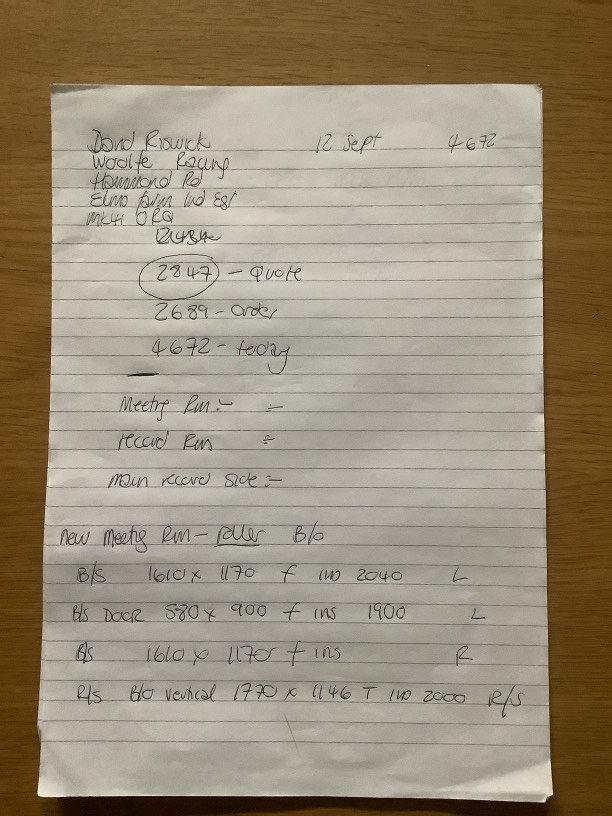 David Riswick 12 Sept 4672
Woolfe Racing
Hammond Rd
Elms farm Ind Est
MK41 0RQ
2847 - Quote
2689 - Order
4672 - today
Meeting Rm :- :-
record Rm :-
Main record side :-
New Meeting Rm - roller B/o
B/S 1610 x 1170 f 2040 L
B/S DOOR 580 x 900 f ins 1900 L
B/S 1610 x 1170 f ins R
R/s B/o vertical 1770 x 1146 T 2000 R/S